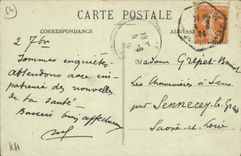 CARTE POSTALE
CORRESPONDANCE
2 7bre
Sommes inquiets
attendons avec im-
patience des nouvelles
de ta santé.
Baisers bien affectueux
Madame Grepet
Les Charmières à Sens
par Sennecey-le-Gd
Saône et Loire